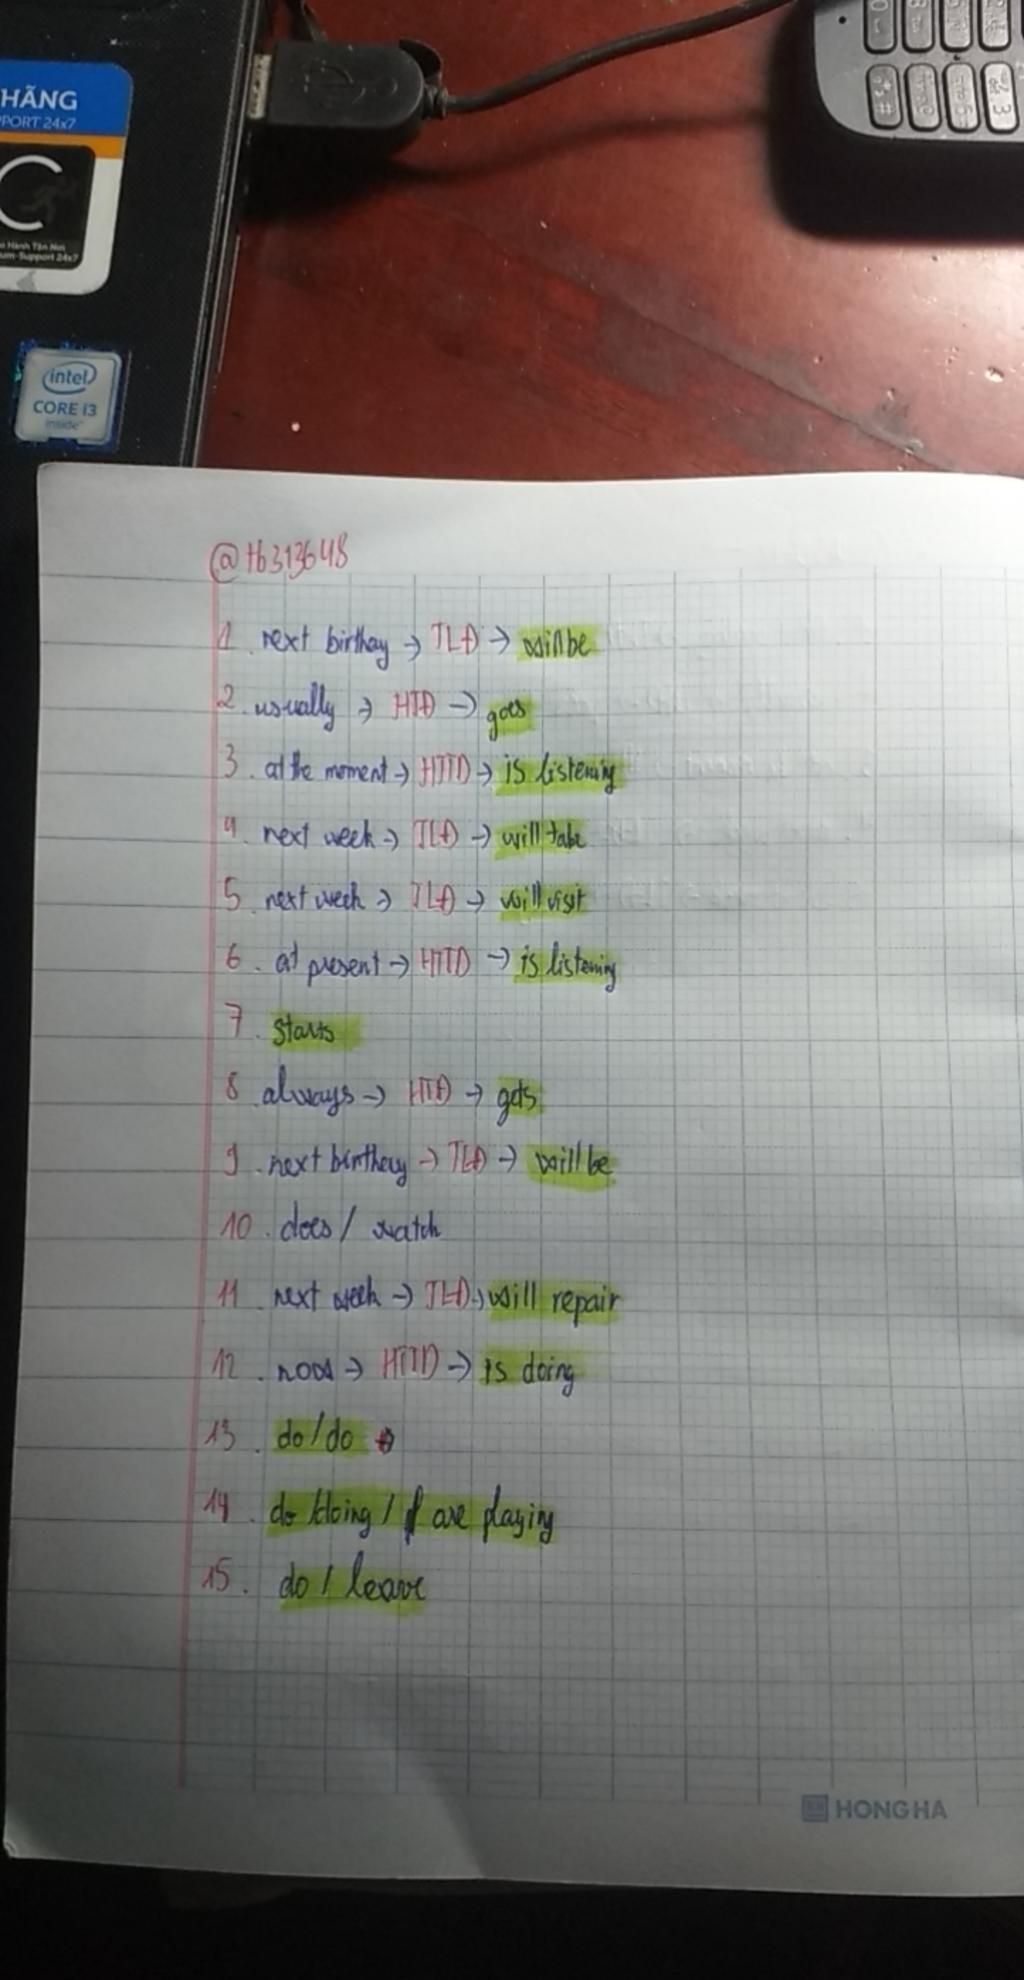 HÃNG
PORT 24x7
C
um-Support 24x7
intel
CORE i3
inside
3
#
@tb313648
1. next birthay → TLĐ → will be
2. usually → HTĐ → goes
3. at the moment → HTTD → is listening
4. next week → TLĐ → will take
5. next week → TLĐ → will visit
6. at present → HTTD → is listening
7. starts
8. always → HTĐ → gets
9. next birthay → TLĐ → will be
10. does / watch
11. next week → TLĐ → will repair
12. now → HTTD → is doing
13. do / do
14. do / doing / are playing
15. do / leave
HONG HA